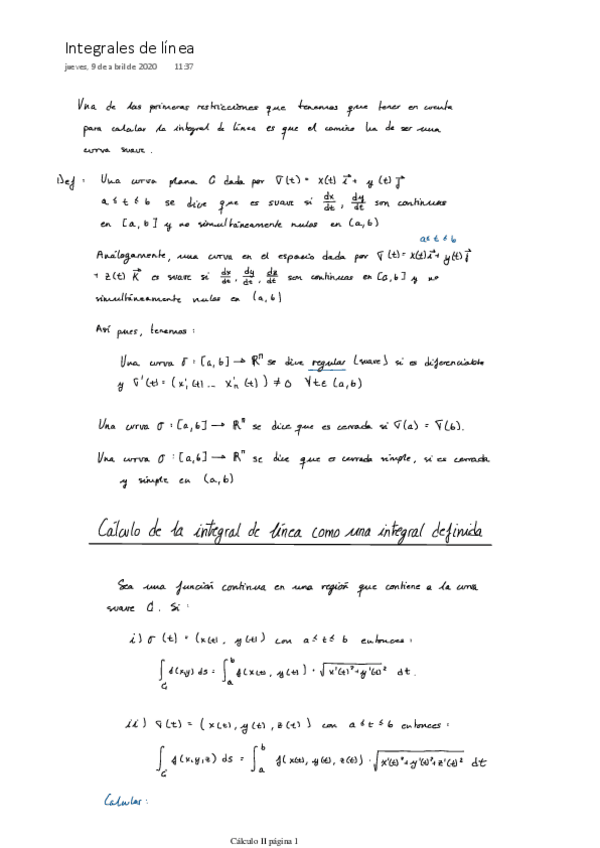 Integrales de línea
jueves, 9 de abril de 2020 11:37
Una de las primeras restricciones que tenemos que tener en cuenta
para calcular la integral de línea es que el camino ha de ser una
curva suave.
Def: Una curva plana C dada por σ(t) = x(t) i⃗ + y(t) j⃗
a ≤ t ≤ b se dice que es suave si dx/dt, dy/dt son continuas
en [a,b] y no simultáneamente nulas en (a,b)
a ≤ t ≤ b
Análogamente, una curva en el espacio dada por σ(t) = x(t) i⃗ + y(t) j⃗
+ z(t) k⃗ es suave si dx/dt, dy/dt, dz/dt son continuas en [a,b] y no
simultáneamente nulas en (a,b)
Así pues, tenemos:
Una curva σ: [a,b] → Rⁿ se dice regular (suave) si es diferenciable
y σ'(t) = (x'₁(t) ... x'ₙ(t)) ≠ 0 ∀t∈(a,b)
Una curva σ: [a,b] → Rⁿ se dice que es cerrada si σ(a) = σ(b).
Una curva σ: [a,b] → Rⁿ se dice que es cerrada simple, si es cerrada
y simple en (a,b)
Cálculo de la integral de línea como una integral definida
Sea una función continua en una región que contiene a la curva
suave C. Si:
i) σ(t) = (x(t), y(t)) con a ≤ t ≤ b entonces:
∫_C f(x,y) ds = ∫_a^b f(x(t), y(t)) · √(x'(t)² + y'(t)²) dt.
ii) σ(t) = (x(t), y(t), z(t)) con a ≤ t ≤ b entonces:
∫_C f(x,y,z) ds = ∫_a^b f(x(t), y(t), z(t)) · √(x'(t)² + y'(t)² + z'(t)²) dt
Calcular:
Cálculo II página 1